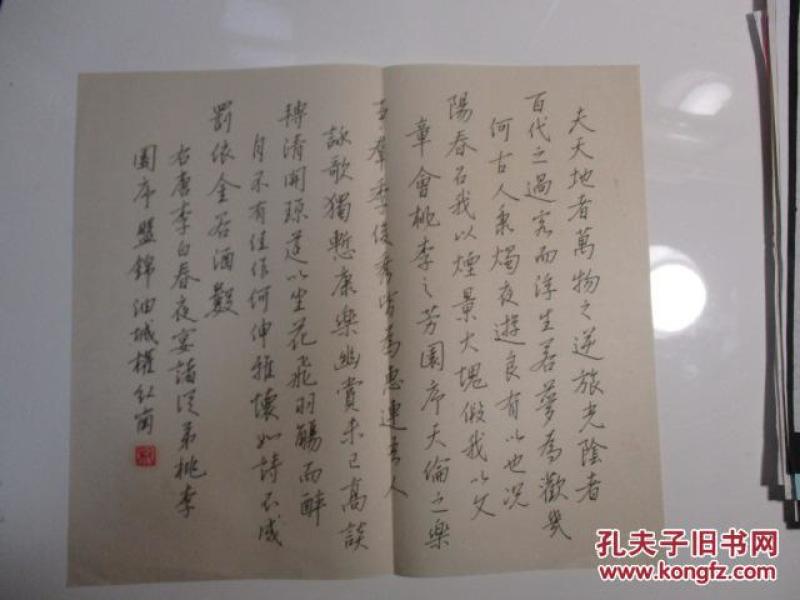 夫天地者萬物之逆旅光陰者
百代之過客而浮生若夢為歡幾
何古人秉燭夜遊良有以也況
陽春召我以煙景大塊假我以文
章會桃李之芳園序天倫之樂
事群季俊秀皆為惠連吾人
詠歌獨慙康樂幽賞未已高談
轉清開瓊筵以坐花飛羽觴而醉
月不有佳作何伸雅懷如詩不成
罰依金谷酒數
右唐李白春夜宴諸從弟桃李
園序盤錦油城權
孔夫子旧书网
www.kongfz.com